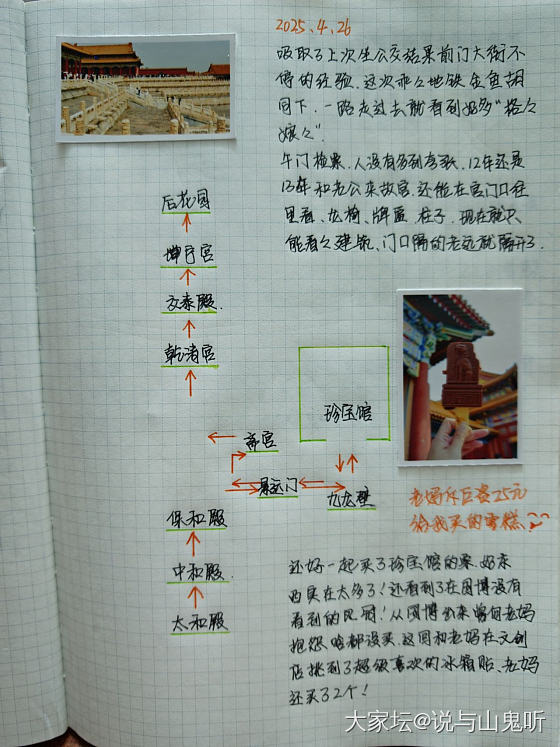 2025.4.26
吸取了上次坐公交结果前门大街不
停的经验，这次乖乖地铁金鱼胡
同下，一路走过去就看到好多“格格
娘娘”。
午门检票，人没有多到夸张，12年还是
13年和老公来故宫，还能在宫门口往
里看，龙椅、牌匾、柱子，现在就只
能看看建筑，门口隔的老远就隔开了。
后花园
坤宁宫
交泰殿
乾清宫
珍宝馆
斋宫
景运门
九龙壁
保和殿
中和殿
太和殿
老妈斥巨资25元
给我买的雪糕
还好一起买了珍宝馆的票，好东
西实在太多了！还看到了在国博没有
看到的凤冠！从国博出来曾向老妈
抱怨啥都没买，这回和老妈在文创
店挑到了超级喜欢的冰箱贴，老妈
还买了2个！
大家坛@说与山鬼听